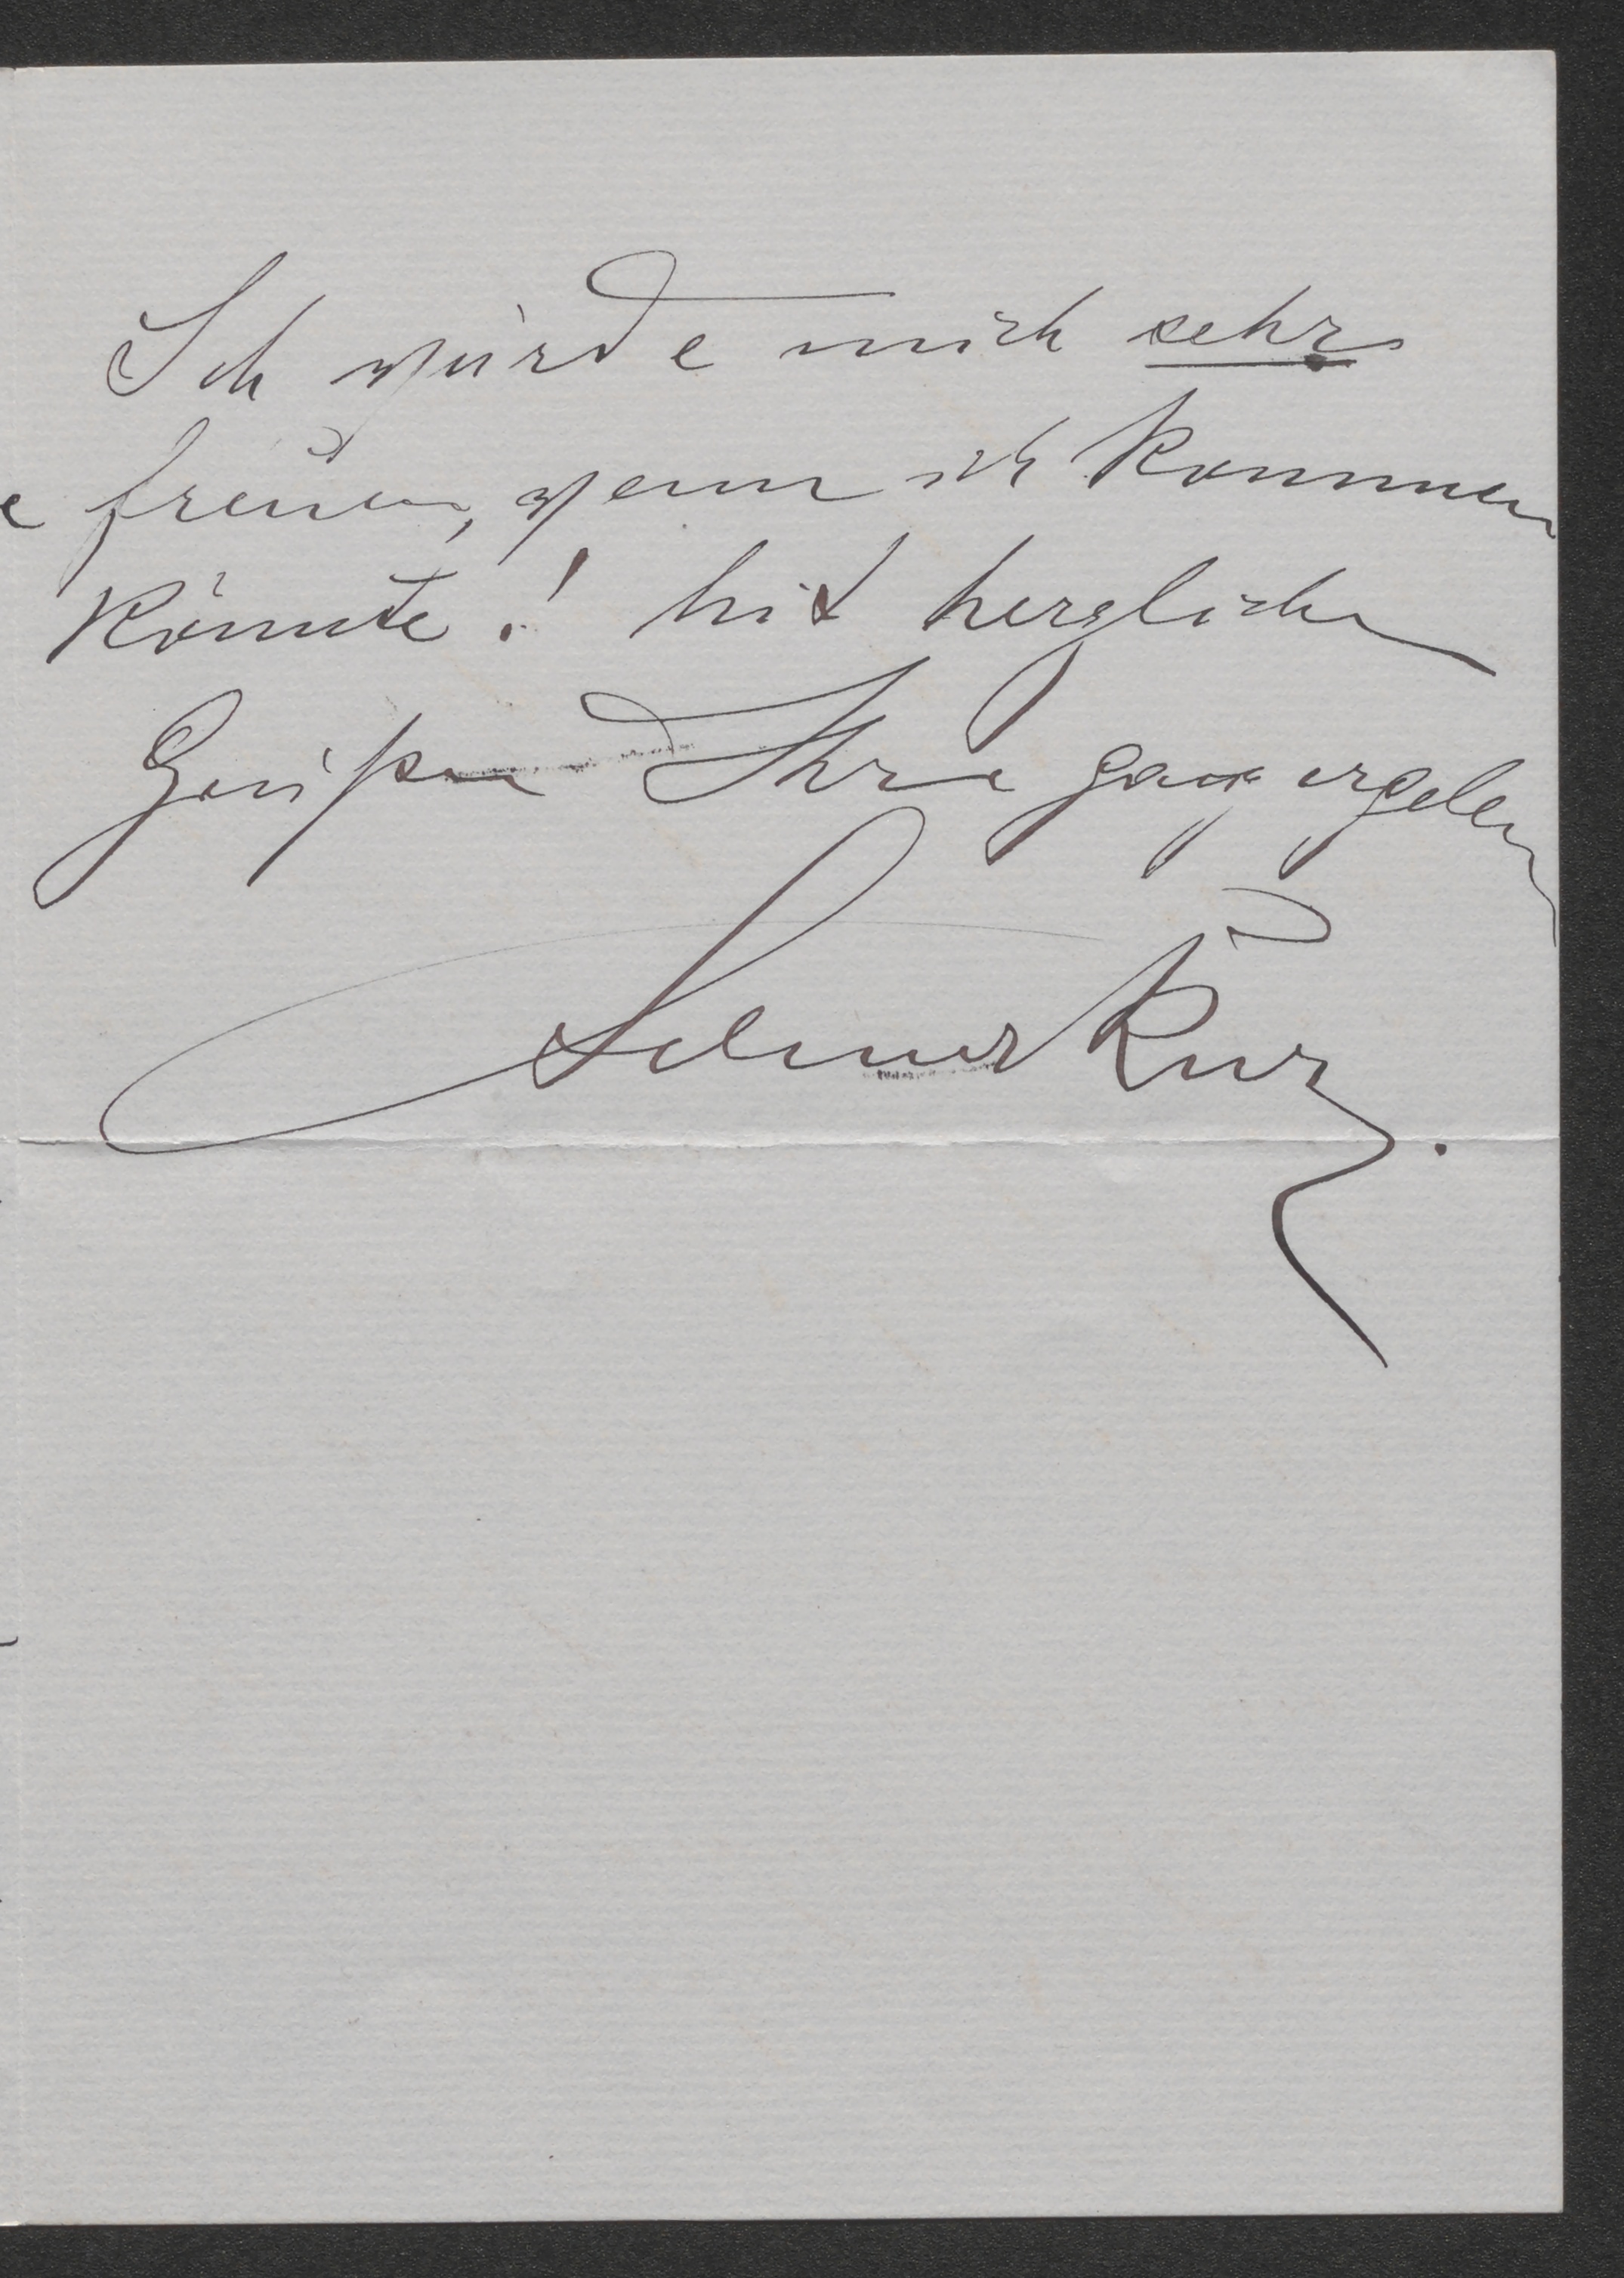 Ich würde mich sehr
freuen, wenn ich kommen
könnte! Mit herzlichen
Grüßen Ihre ganz ergeben
Selma Kurz.